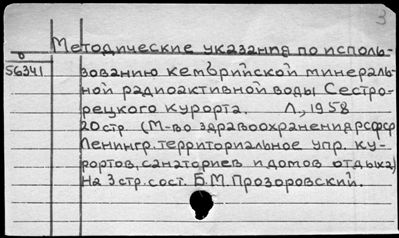 3
Методические указания по исполь-
б
56341
зованию кембрийской минераль-
ной радиоактивной воды Сестро-
рецкого курорта. Л., 1958
20 стр. (М-во здравоохранения РСФСР
Ленингр. территориальное упр. ку-
рортов, санаториев и домов отдыха)
На 3 стр. сост. Б. М. Прозоровский.